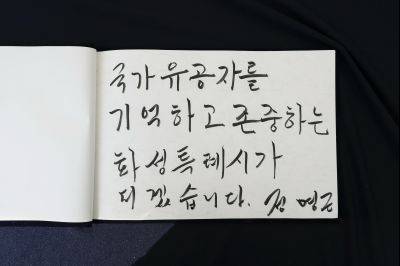 국가유공자를
기억하고 존중하는
화성특례시가
되겠습니다. 정명근